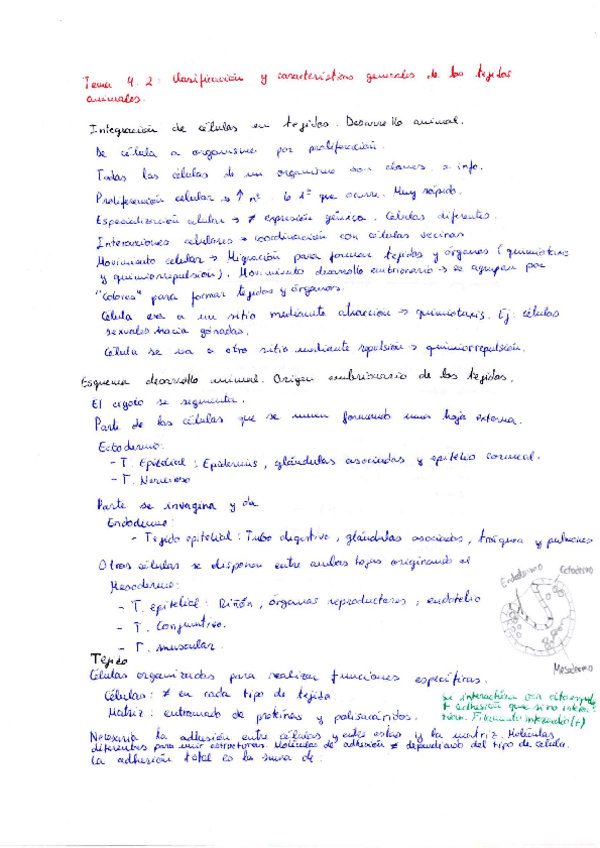 Tema 4.2: Clasificación y características generales de los tejidos
animales.
Integración de células en tejidos. Desarrollo animal.
De célula a organismo por proliferación.
Todas las células de un organismo son clones. = info.
Proliferación celular → ↑ nº. Lo 1º que ocurre. Muy rápido.
Especialización celular → ≠ expresión génica. Células diferentes.
Interacciones celulares → coordinación con células vecinas
Movimiento celular → Migración para formar tejidos y órganos (quimiotaxis
y quimiorrepulsión). Movimiento desarrollo embrionario → se agrupan por
"colores" para formar tejidos y órganos.
Célula va a un sitio mediante atracción → quimiotaxis. Ej: células
sexuales hacia gónadas.
Célula se va a otro sitio mediante repulsión → quimiorrepulsión.
Esquema desarrollo animal. Origen embrionario de los tejidos.
El cigoto se segmenta.
Parte de las células que se unen formando una hoja externa.
Ectodermo:
- T. Epitelial: Epidermis, glándulas asociadas y epitelio corneal.
- T. Nervioso
Parte se invagina y da
Endodermo:
- Tejido epitelial: Tubo digestivo, glándulas asociadas, tráquea y pulmones
Otras células se disponen entre ambas hojas originando el
Mesodermo:
- T. epitelial: Riñón, órganos reproductores, endotelio
- T. Conjuntivo.
- T. muscular.
Endodermo
Ectodermo
Mesodermo
Tejido
Células organizadas para realizar funciones específicas.
Células: ≠ en cada tipo de tejido.
Matriz: entramado de proteínas y polisacáridos.
si interactúan con citoesquele
+ adhesión que si no interac
túan. Filamento intermedio (+)
Necesaria la adhesión entre células y entre estas y la matriz. Moléculas
diferentes para unir estructuras. Moléculas de adhesión ≠ dependiendo del tipo de célula.
La adhesión total es la suma de: